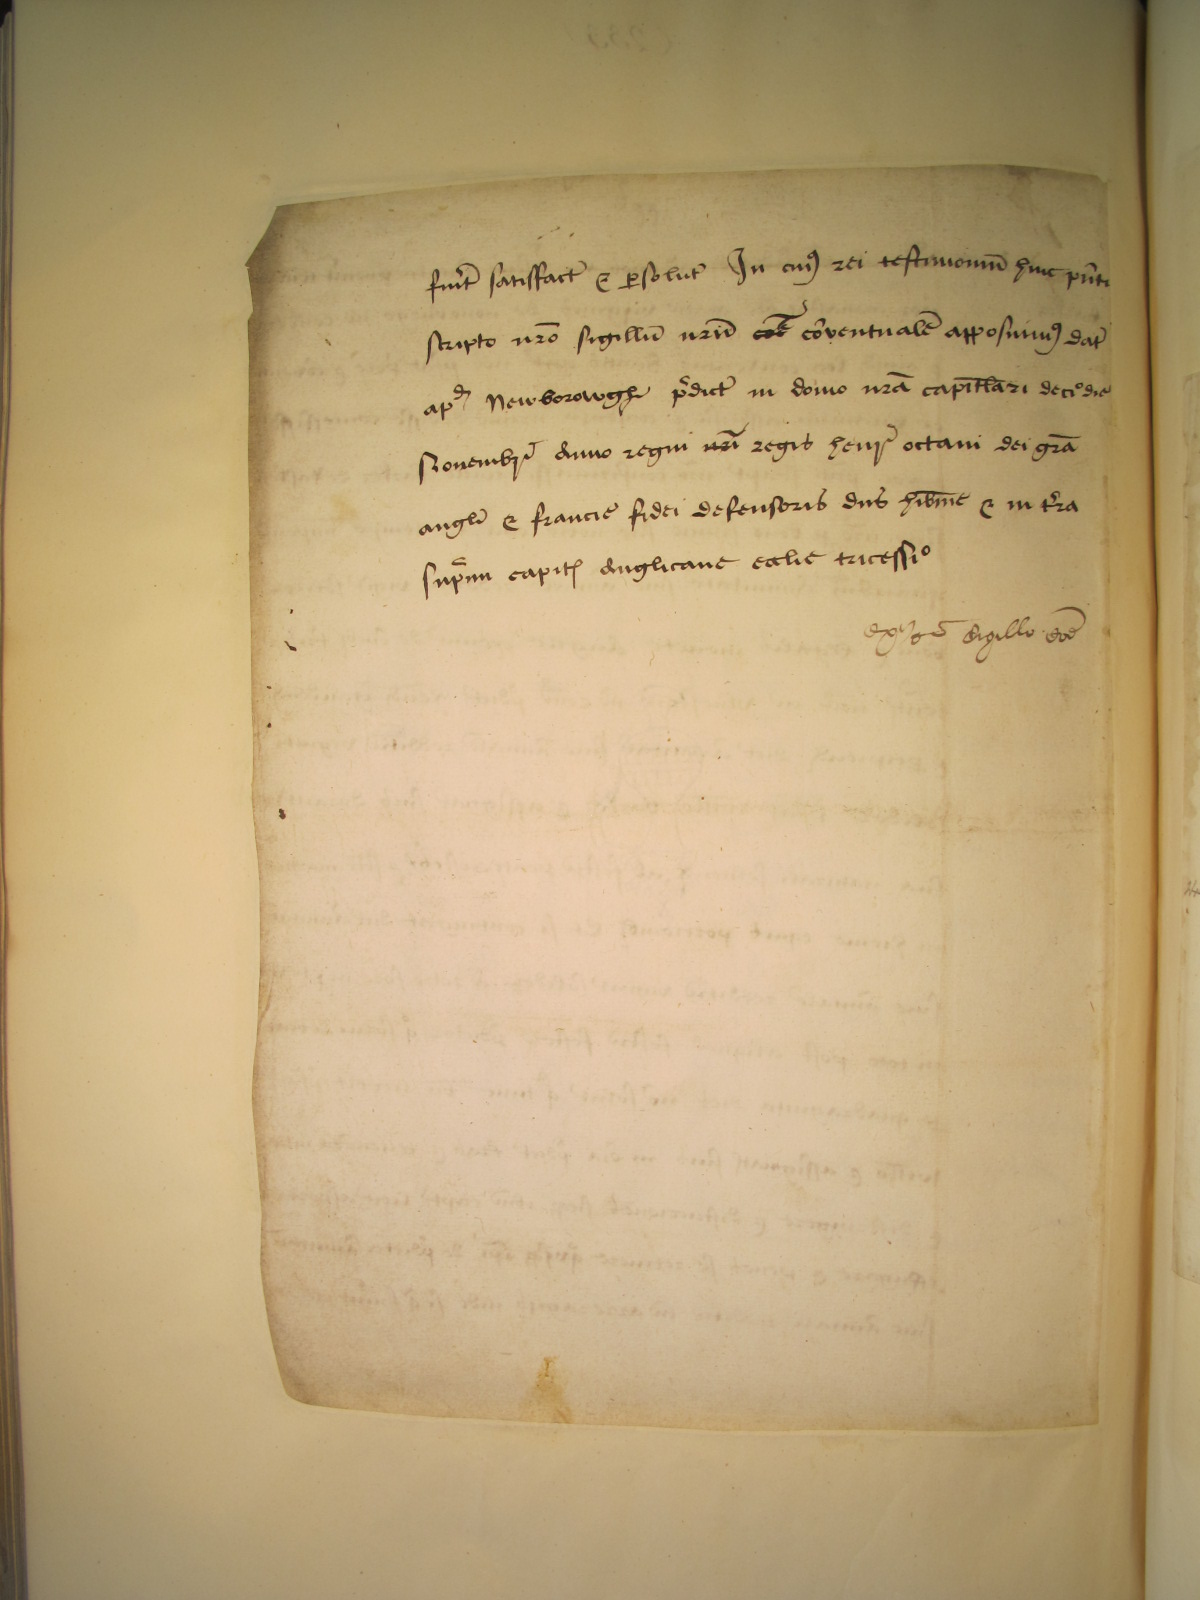 fuint satisffact & psolut In cui9 rei testimoniu huic pnti
scripto nro sigillu nru coe coventuale apposuim9 dat
apd Newborowghe pdict in domo nra capitlari deci° die
Novembr Anno regni nri regis henr octavi dei gra
angli & francie fidei defensoris dns hibnie & in tra
supmu capit Anglicane ecclie tricessi°
sigillo coe